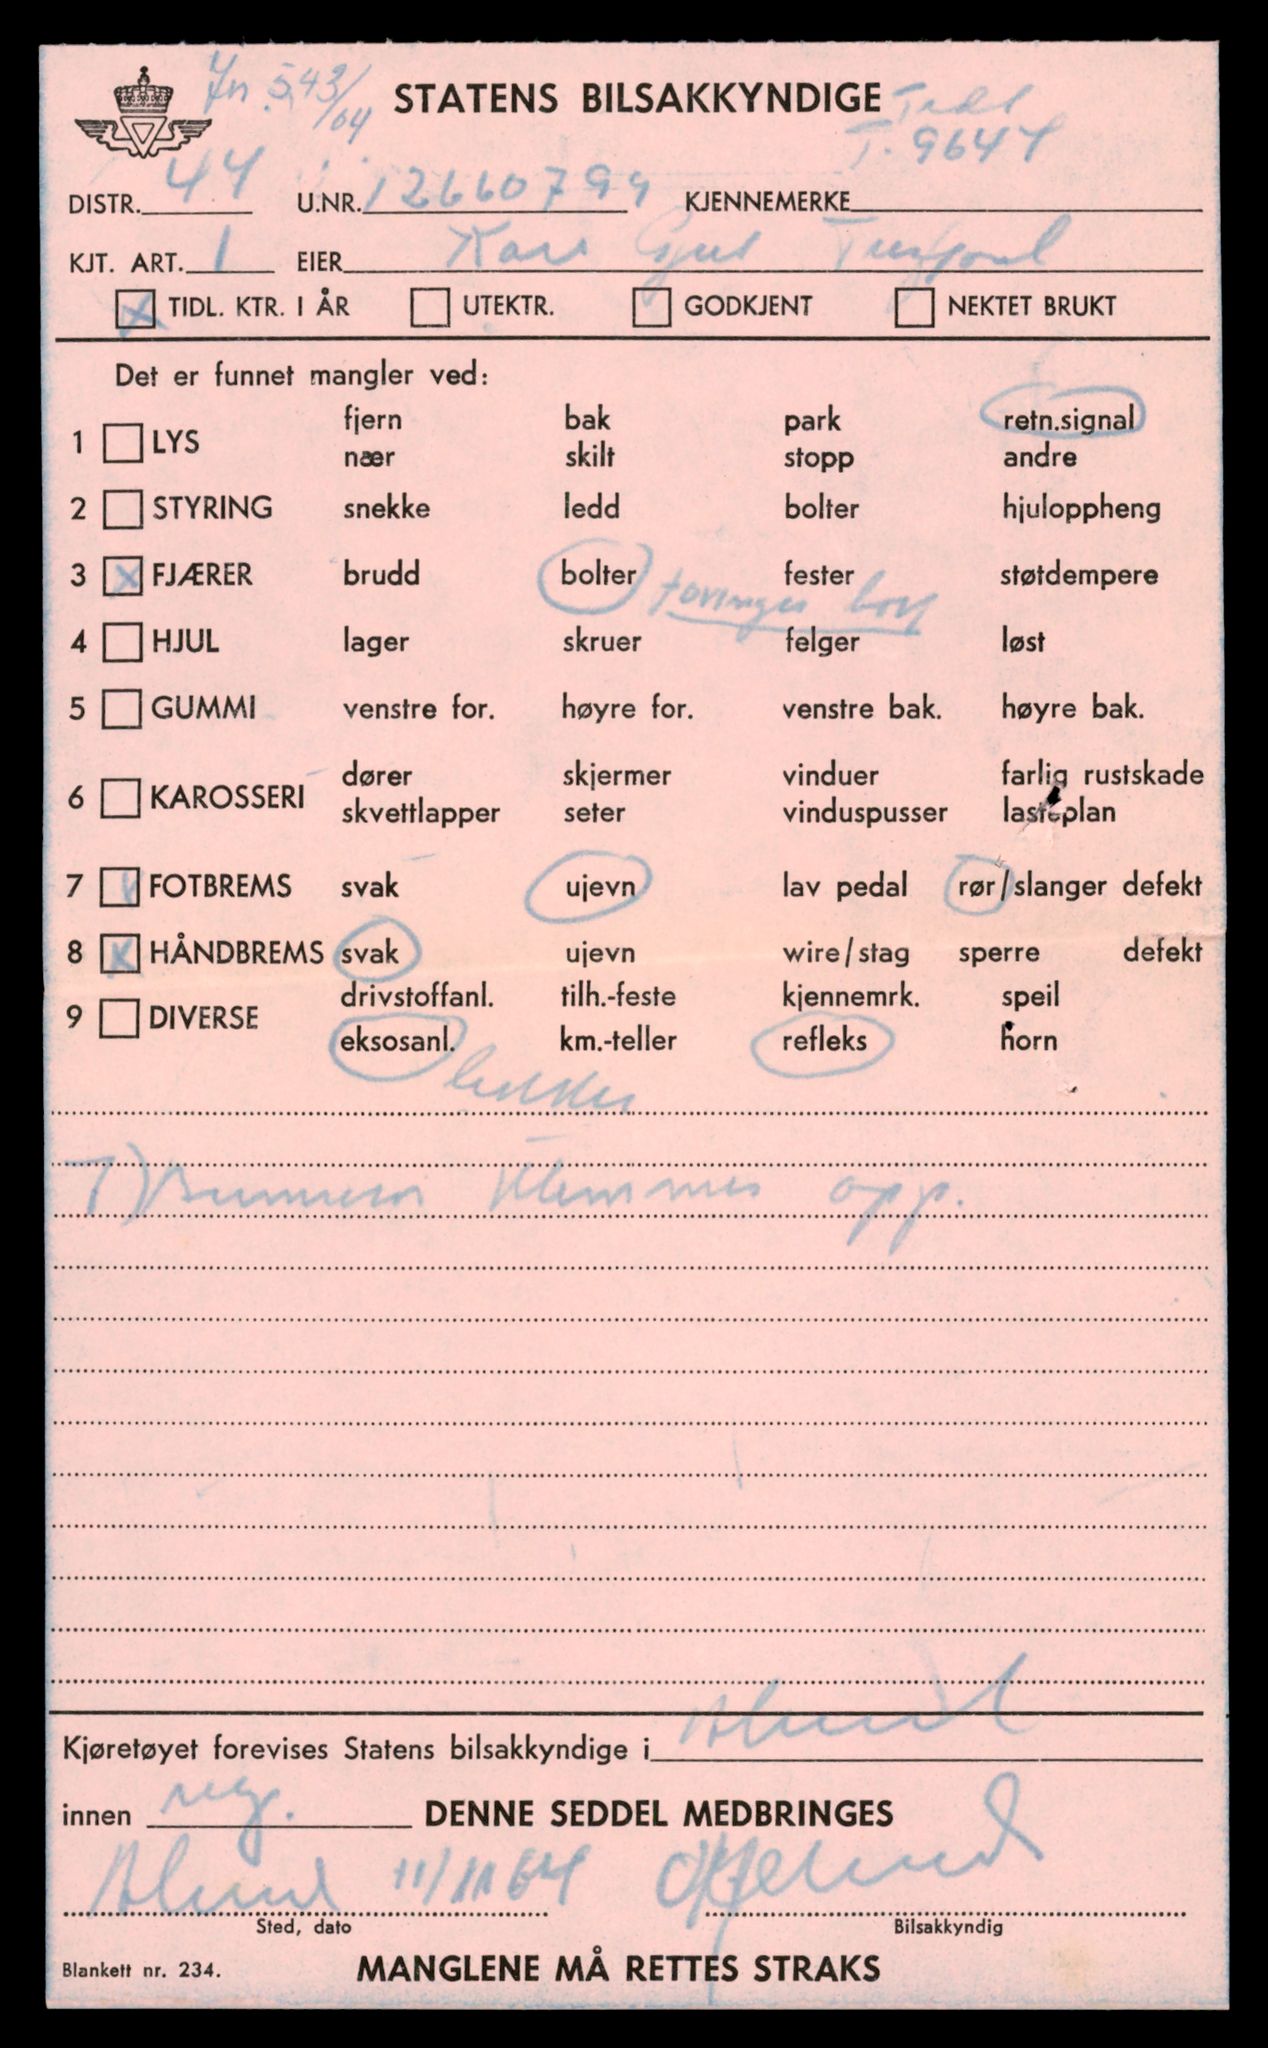 Jn 543/64
STATENS BILSAKKYNDIGE
Tidl
T. 9647
DISTR. 44 U.NR. 12660799 KJENNEMERKE
KJT. ART. 1 EIER
TIDL. KTR. I ÅR UTEKTR. GODKJENT NEKTET BRUKT
Det er funnet mangler ved:
fjern bak park retn.signal
1 LYS
nær skilt stopp andre
2 STYRING snekke ledd bolter hjuloppheng
3 FJÆRER brudd bolter fester støtdempere
4 HJUL lager skruer felger løst
5 GUMMI venstre for. høyre for. venstre bak. høyre bak.
dører skjermer vinduer farlig rustskade
6 KAROSSERI
skvettlapper seter vinduspusser lasteplan
7 FOTBREMS svak ujevn lav pedal rør/slanger defekt
8 HÅNDBREMS svak ujevn wire/stag sperre defekt
drivstoffanl. tilh.-feste kjennemrk. speil
9 DIVERSE
eksosanl. km.-teller refleks horn
7) klemmes opp.
Kjøretøyet forevises Statens bilsakkyndige i Ålesund
innen reg. DENNE SEDDEL MEDBRINGES
Ålesund 11/11 64
Sted, dato Bilsakkyndig
Blankett nr. 234. MANGLENE MÅ RETTES STRAKS